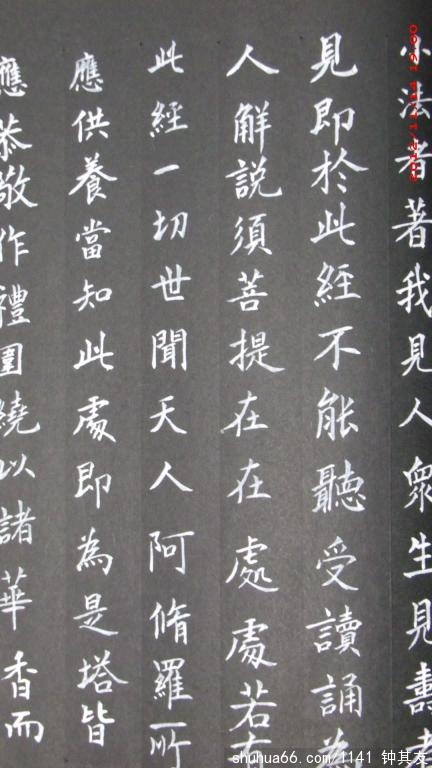 小法者著我見人衆生見壽者
見即於此經不能聽受讀誦為
人解說須菩提在在處處若有
此經一切世聞天人阿脩羅所
應供養當知此處即為是塔皆
應恭敬作禮圍繞以諸華香而
shuhua66.com/1141 钟其友